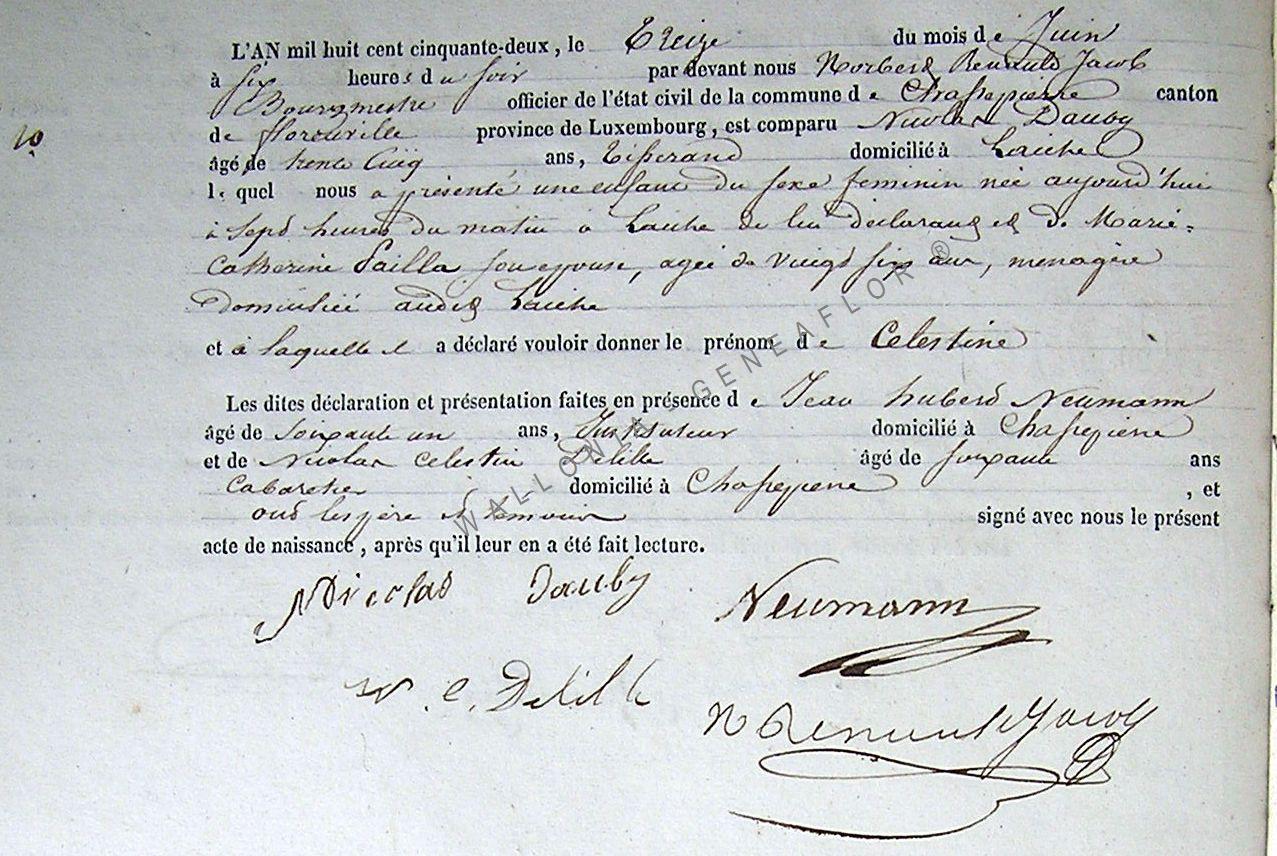 L'AN mil huit cent cinquante-deux, le Treize du mois de Juin
à six heures du soir par devant nous Norbert Renauld Jacob
Bourgmestre officier de l'état civil de la commune de Chassepierre canton
de florenville province de Luxembourg, est comparu Nicolas Dauby
âgé de trente Cinq ans, Tisserand domicilié à Laiche
lequel nous a présenté une enfant du sexe feminin née aujourd'hui
à sept heures du matin a Laiche de lui déclarant et de Marie-
Catherine Pailla son epouse, agée de vingt six ans, menagère
domiciliée audit Laiche
et à laquelle il a déclaré vouloir donner le prénom de Celestine
Les dites déclaration et présentation faites en présence de Jean hubert Neumann
âgé de soixante un ans, Instituteur domicilié à Chassepierre
et de Nicolas Celestin Delille âgé de soixante ans
Cabaretier domicilié à Chassepierre, et
ont les père et temoins signé avec nous le présent
acte de naissance, après qu'il leur en a été fait lecture.
Nicolas Dauby Neumann
N. C. Delille
N Renauld Jacob
WALLONIA - GENEAFLOR ®